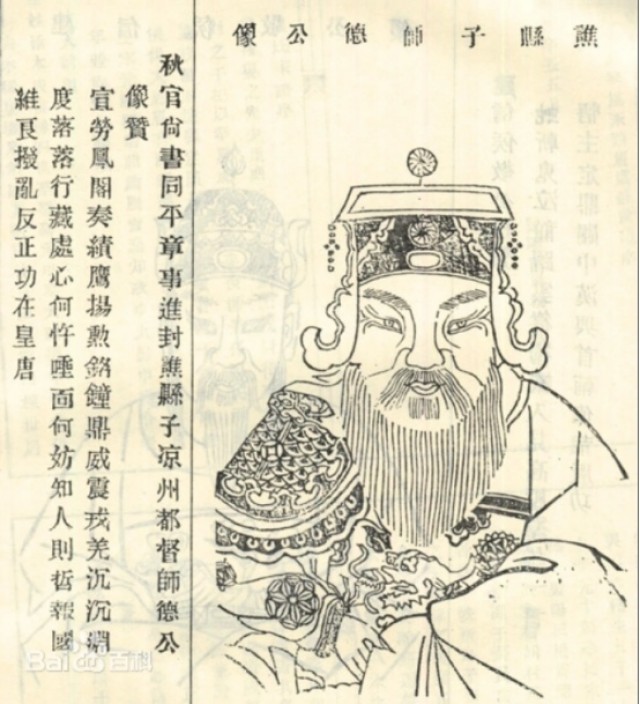 譙縣子師德公像
秋官尚書同平章事進封譙縣子凉州都督師德公
像贊
宣勞鳳閣奏績鷹揚勲銘鐘鼎威震戎羌沉沉淵
度落落行藏處心何忤唾面何妨知人則哲報國
維良撥亂反正功在皇唐
Bai 百科